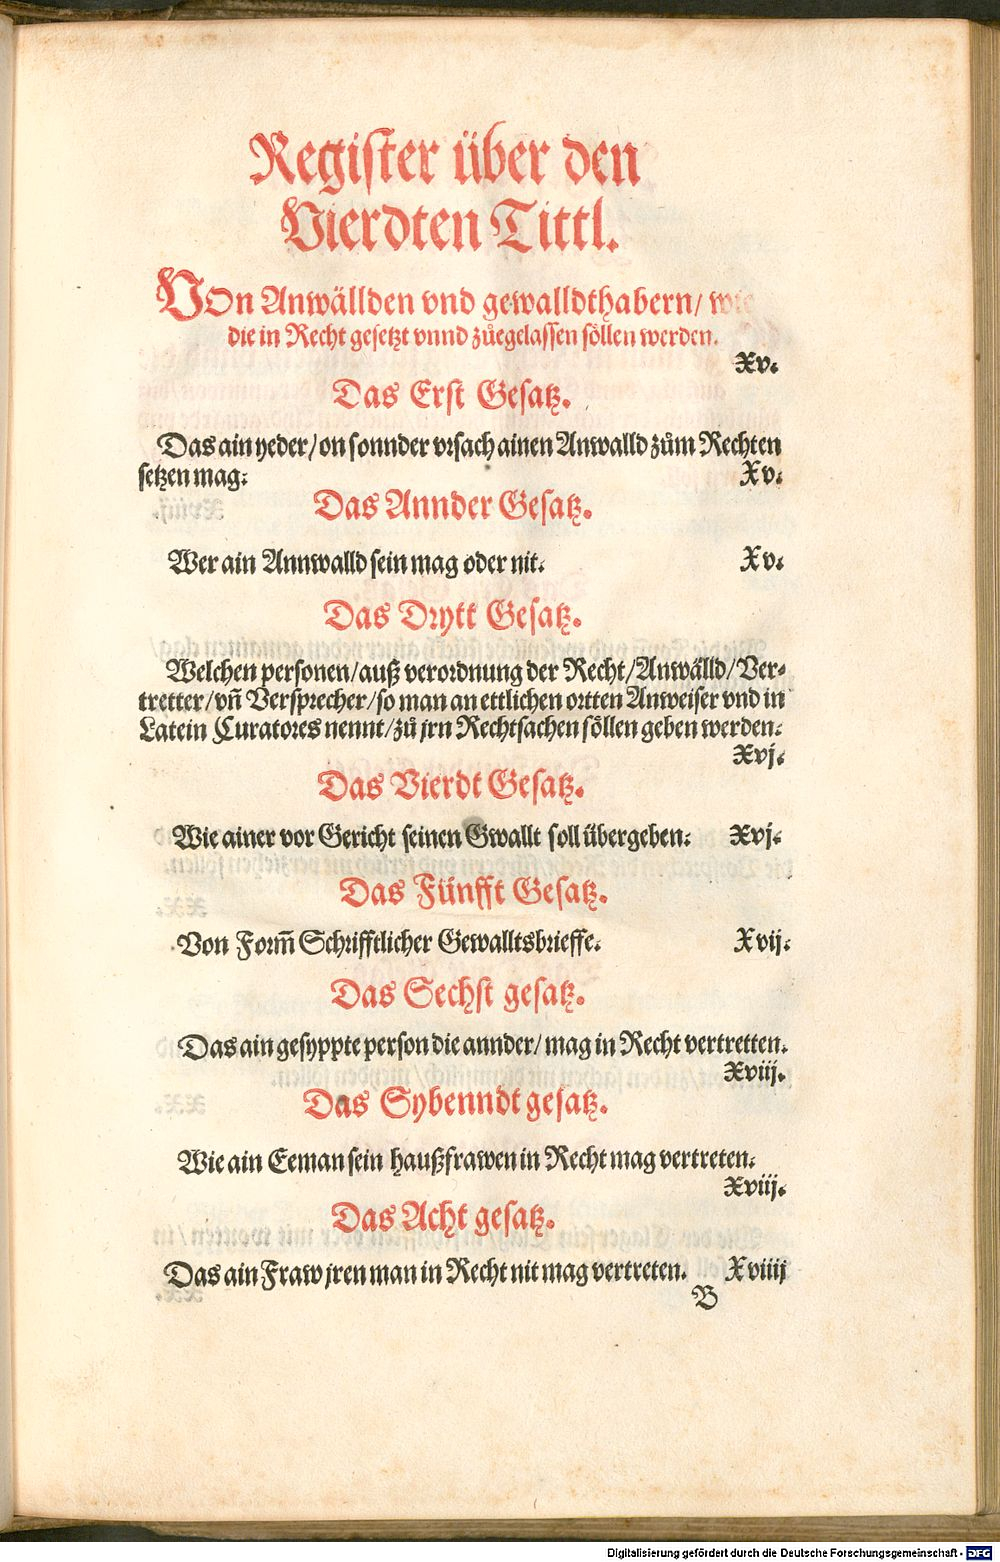 Register über den
Vierdten Tittl.
VOn Anwällden vnd gewalldthabern/ wie
die in Recht gesetzt vnnd zůegelassen söllen werden.
Xv.
Das Erst Gesatz.
Das ain yeder/ on sonnder vrsach ainen Anwalld zům Rechten
setzen mag.
Xv.
Das Annder Gesatz.
Wer ain Annwalld sein mag oder nit.
Xv.
Das Drytt Gesatz.
Welchen personen/ auß verordnung der Recht/ Anwälld/ Ver-
tretter/ vñ Versprecher/ so man an ettlichen ortten Anweiser vnd in
Latein Curatores nennt/ zů jrn Rechtsachen söllen geben werden.
Xvj.
Das Vierdt Gesatz.
Wie ainer vor Gericht seinen Gwallt soll übergeben. Xvj.
Das Fünfft Gesatz.
Von Form̃ Schrifftlicher Gewalltsbrieffe. Xvij.
Das Sechst gesatz.
Das ain gesyppte person die annder/ mag in Recht vertretten.
Xviij.
Das Sybenndt gesatz.
Wie ain Eeman sein haußfrawen in Recht mag vertreten.
Xviij.
Das Acht gesatz.
Das ain Fraw jren man in Recht nit mag vertreten. Xviiij
B
Digitalisierung gefördert durch die Deutsche Forschungsgemeinschaft - DFG